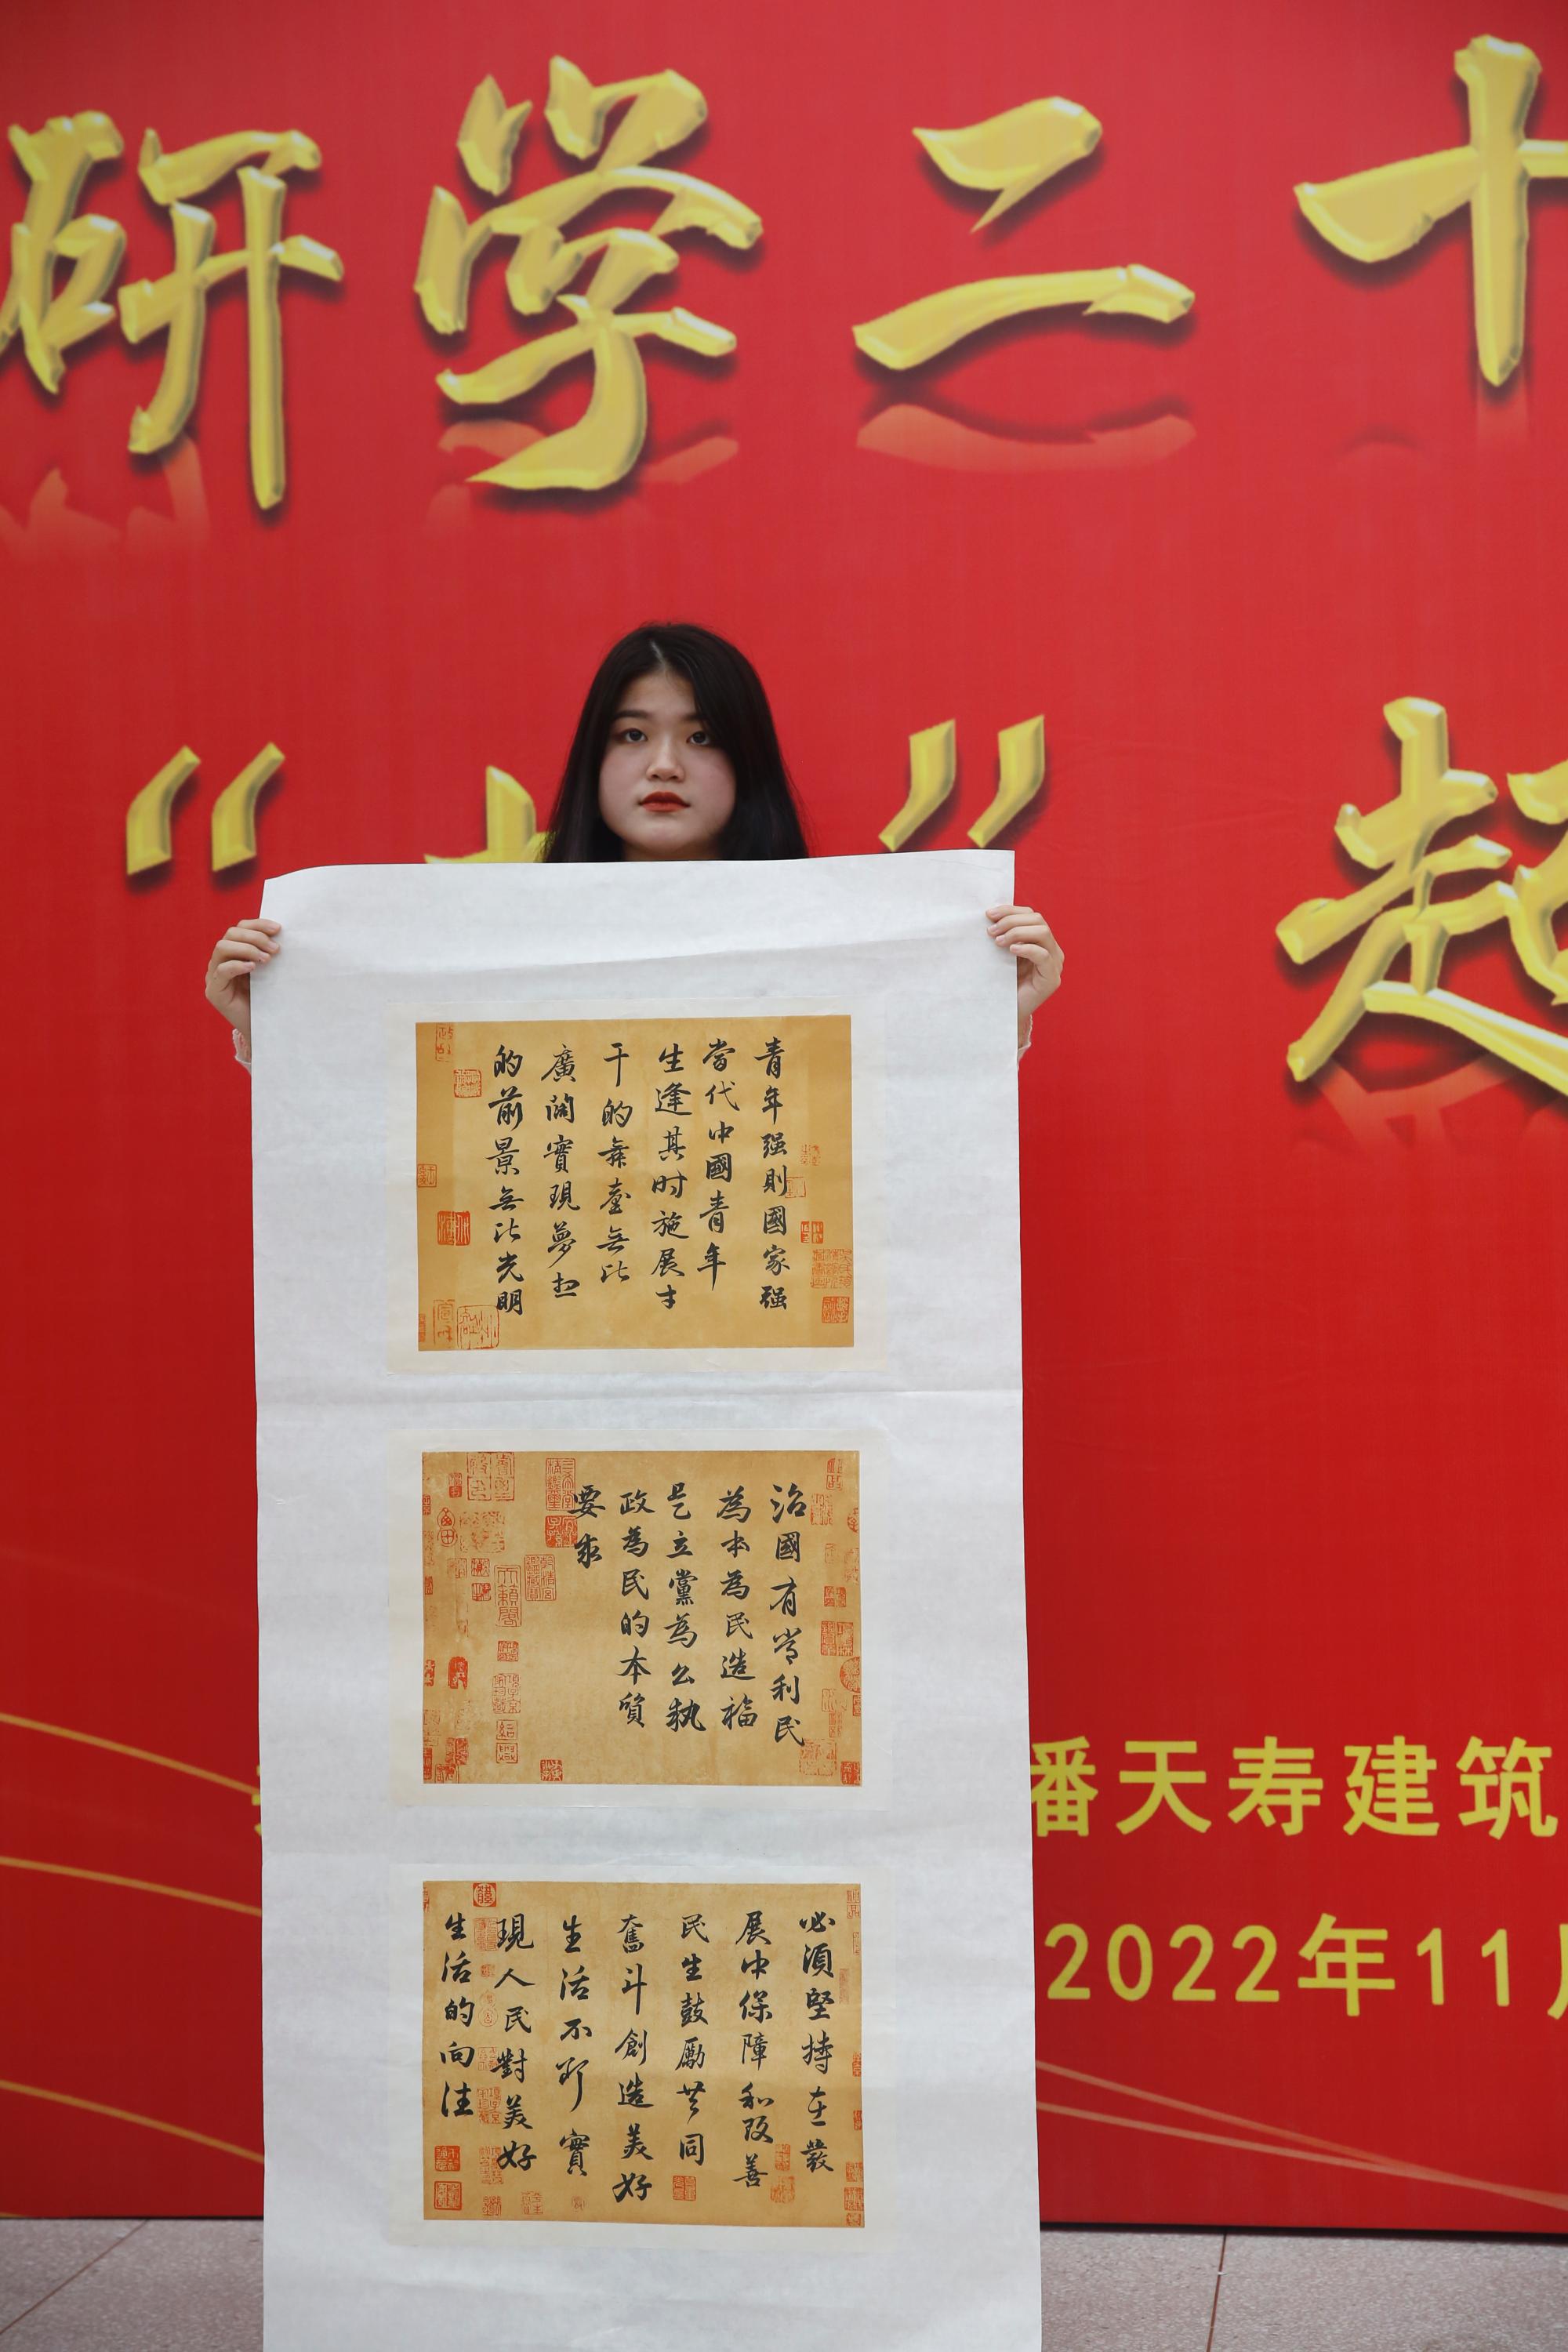 研学二十
“
”起
青年强則國家强
當代中國青年
生逢其时施展才
干的舞臺无比
廣阔實現夢想
的前景无比光明
治國有常利民
為本為民造福
是立黨為公執
政為民的本質
要求
必須堅持在發
展中保障和改善
民生鼓勵共同
奮斗創造美好
生活不斷實
現人民對美好
生活的向往
潘天寿建筑
2022年11月